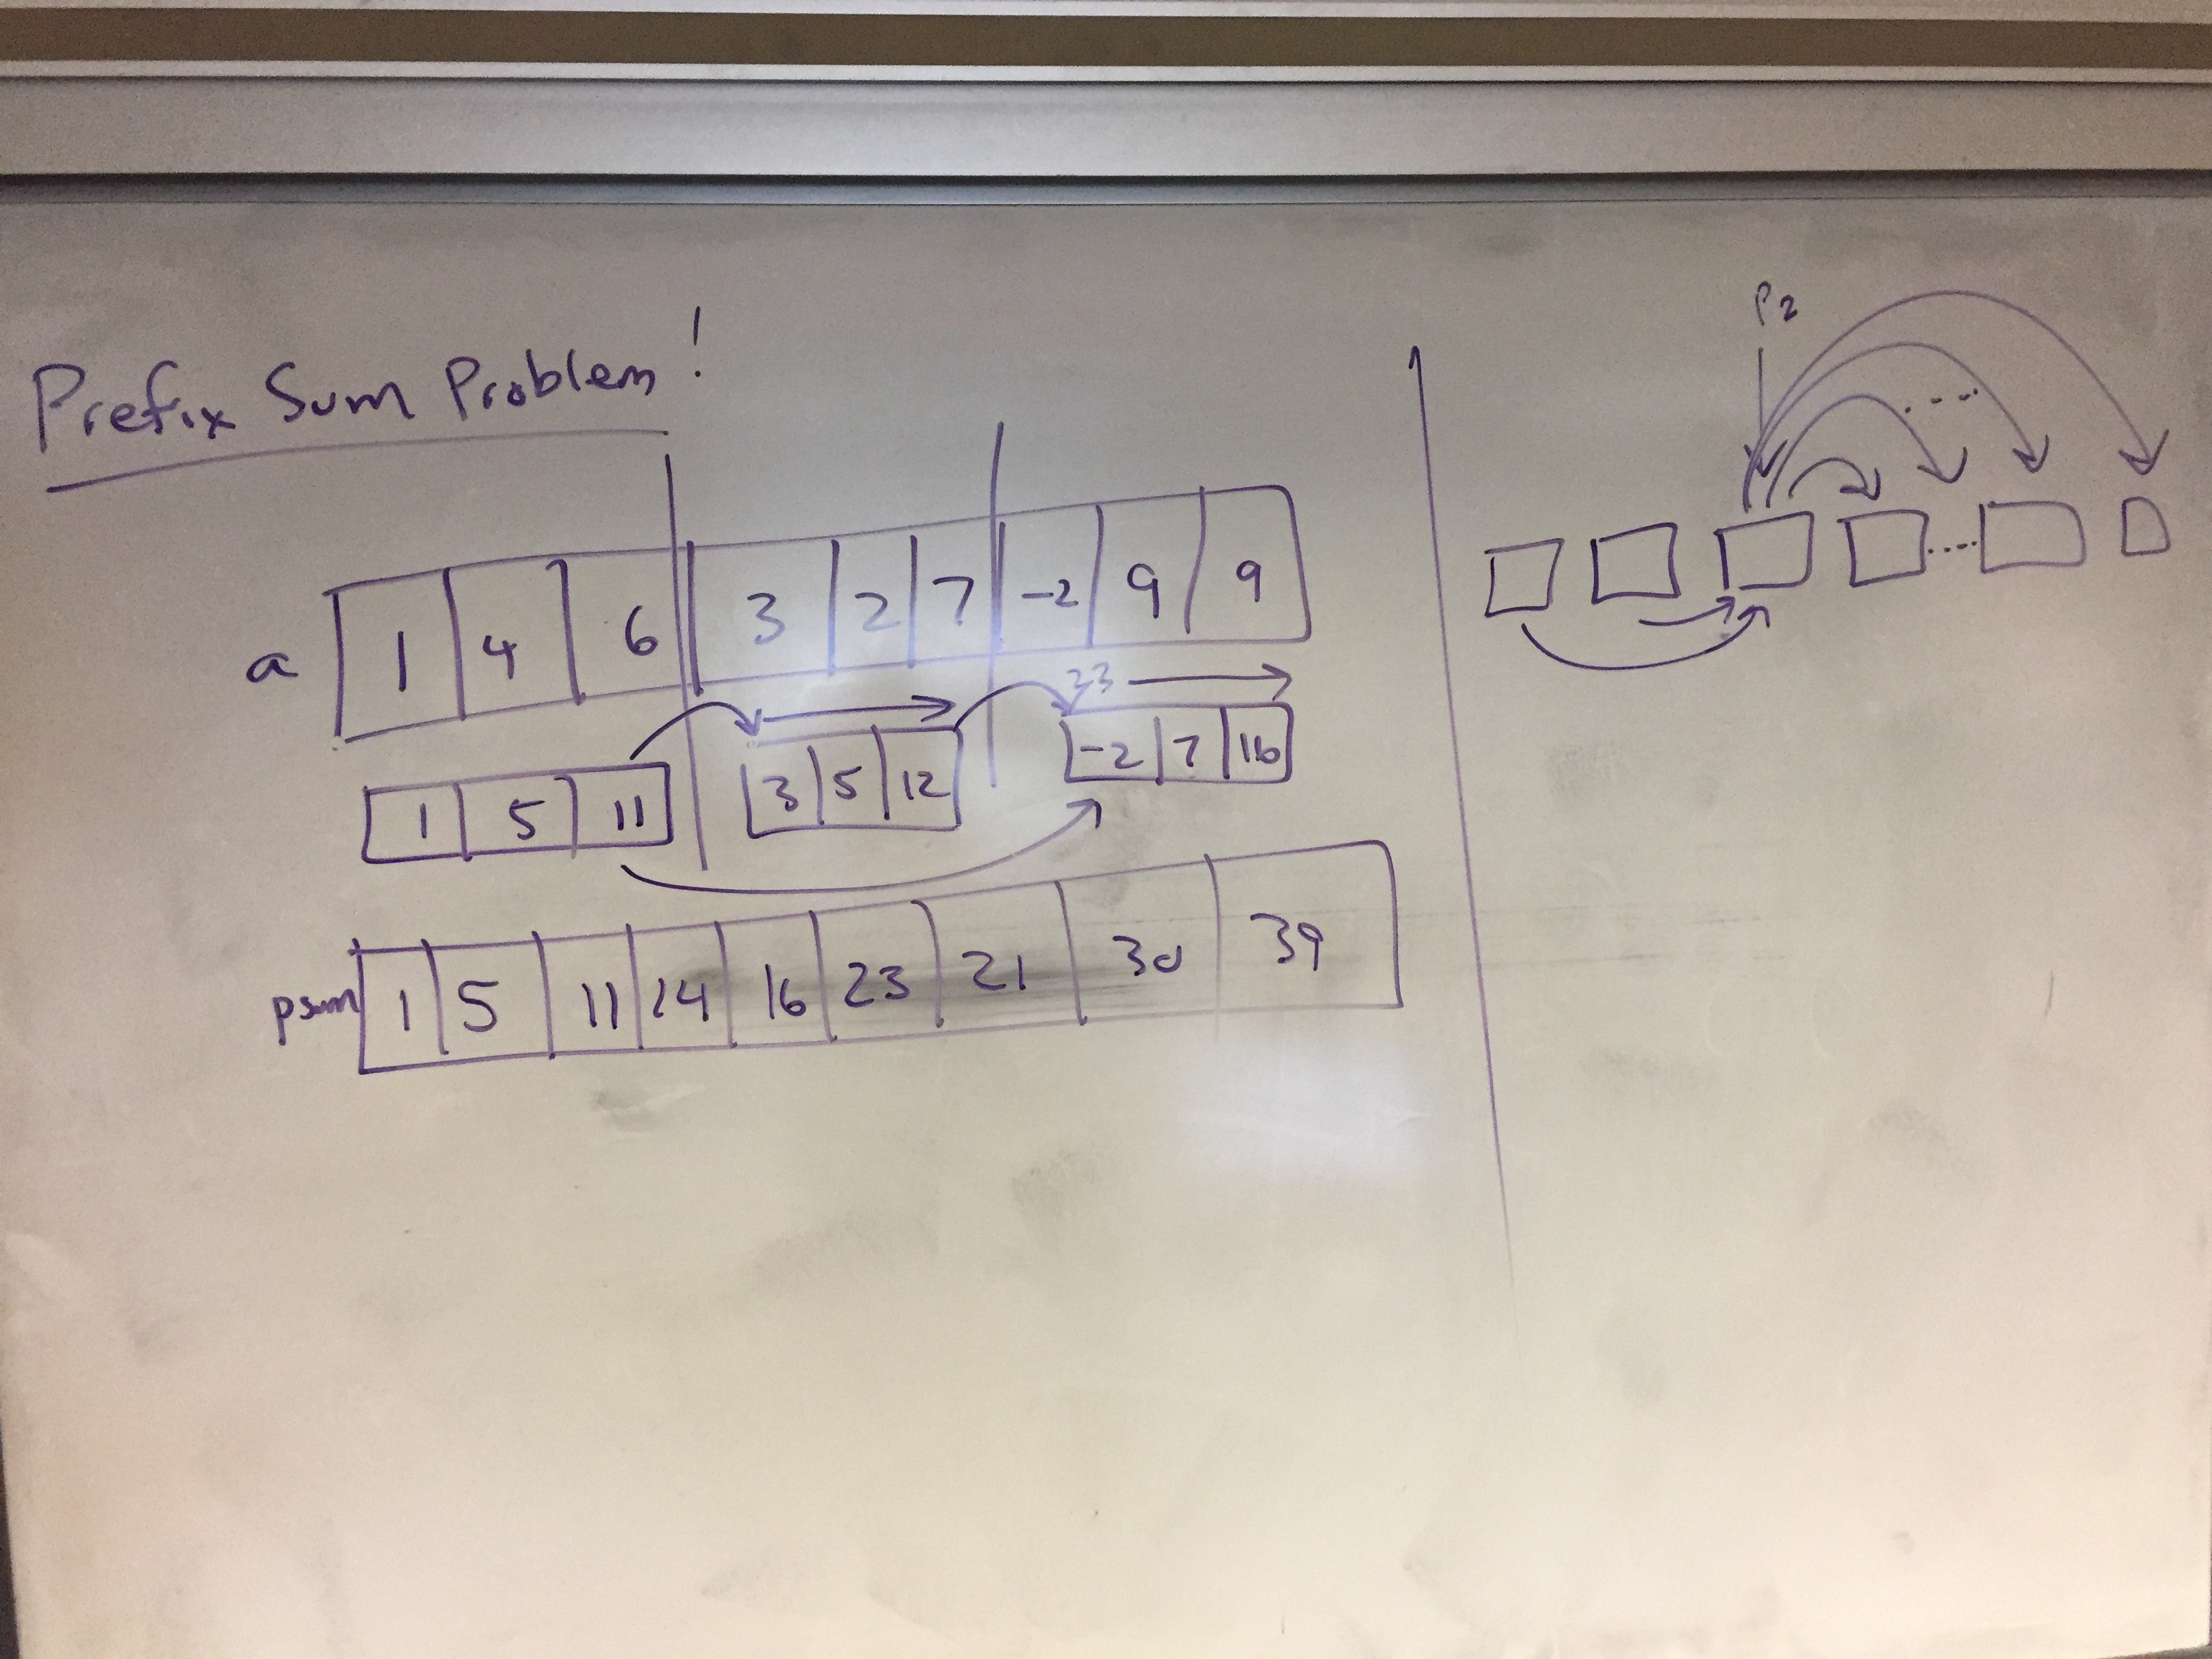 Prefix Sum Problem!
P2
a 1 4 6 3 2 7 -2 9 9
23
1 5 11 3 5 12 -2 7 16
psum 1 5 11 14 16 23 21 30 39